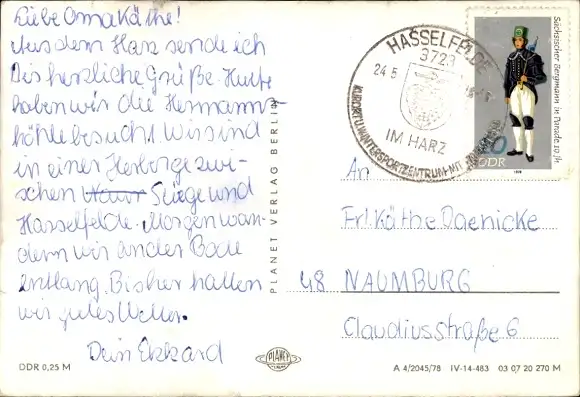 Liebe Oma Käthe!
Aus dem Harz sende ich
Dir herzliche Grüße. Heute
haben wir die Hermanns-
höhle besucht. Wir sind
in einer Herberge zwi-
schen Stiege und
Hasselfelde. Morgen wan-
dern wir an der Bode
entlang. Bisher hatten
wir gutes Wetter.
Dein Ekkard
DDR 0,25 M
PLANET VERLAG BERLIN
PLANET
HASSELFELDE
3723
24.5
IM HARZ
KURORT U. WINTERSPORTZENTRUM MIT
Sächsischer Bergmann in Parade 19. Jh.
DDR
1978
An
Frl. Käthe Daenicke
48 NAUMBURG
Claudiusstraße 6
A 4/2045/78 IV-14-483 03 07 20 270 M